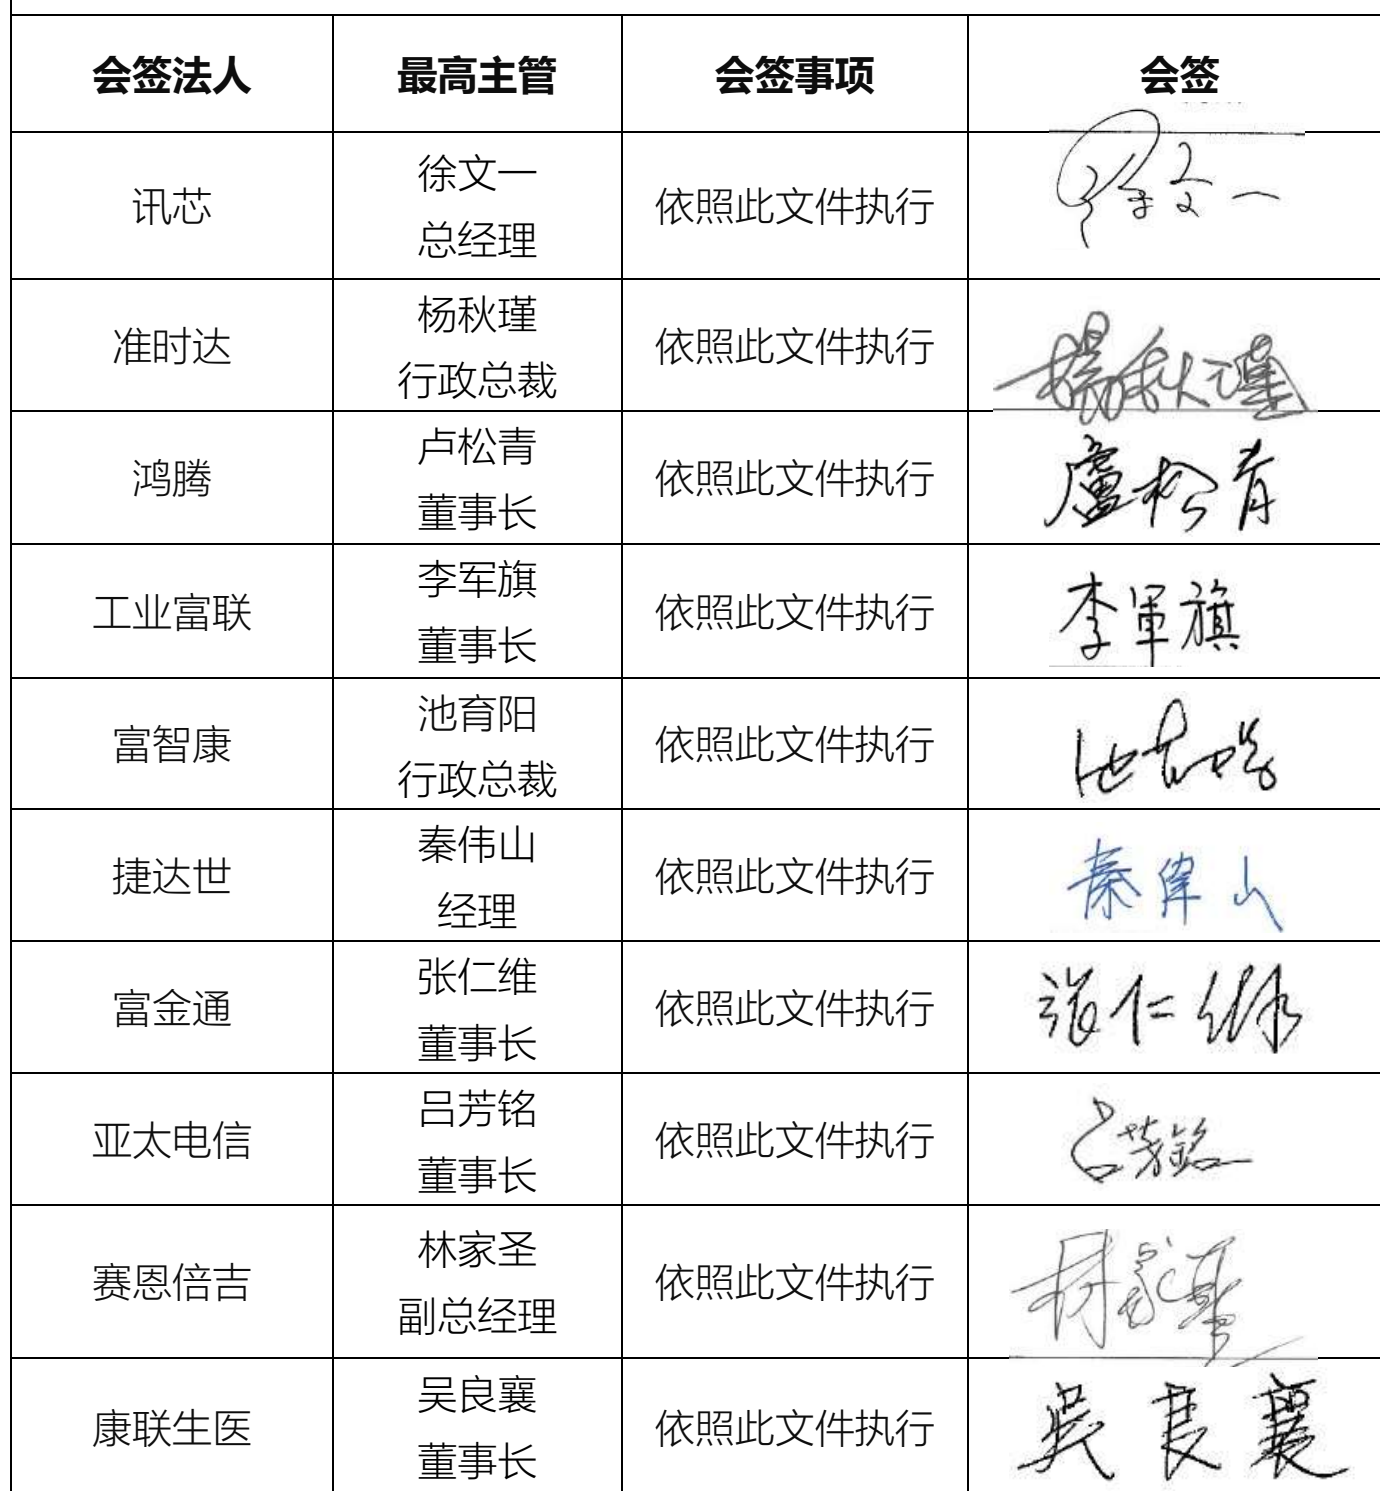 会签法人 最高主管 会签事项 会签
讯芯 徐文一 总经理 依照此文件执行 徐文一
准时达 杨秋瑾 行政总裁 依照此文件执行 楊秋瑾
鸿腾 卢松青 董事长 依照此文件执行 盧松青
工业富联 李军旗 董事长 依照此文件执行 李軍旗
富智康 池育阳 行政总裁 依照此文件执行 池育陽
捷达世 秦伟山 经理 依照此文件执行 秦偉山
富金通 张仁维 董事长 依照此文件执行 張仁維
亚太电信 吕芳铭 董事长 依照此文件执行 呂芳銘
赛恩倍吉 林家圣 副总经理 依照此文件执行 林家聖
康联生医 吴良襄 董事长 依照此文件执行 吳良襄